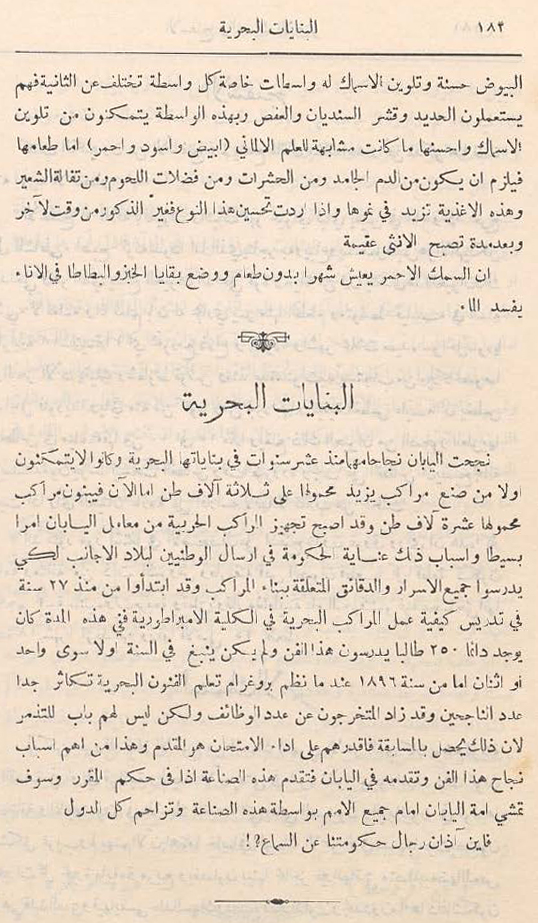 ١٨٢ البنايات البحرية
البيوض حسنة وتلوين الاسماك له واسطات خاصة كل واسطة تختلف عن الثانية فهم
يستعملون الحديد وقشر السنديان والعفص وبهذه الواسطة يتمكنون من تلوين
الاسماك واحسنها ما كانت مشابهة للعلم الالماني (ابيض واسود واحمر) اما طعامها
فيلزم ان يكون من الدم الجامد ومن الحشرات ومن فضلات اللحوم ومن تفالة الشعير
وهذه الاغذية تزيد في نموها واذا اردت تحسين هذا النوع فغير الذكور من وقت لآخر
وبعد مدة تصبح الانثى عقيمة
ان السمك الاحمر يعيش شهرا بدون طعام ووضع بقايا الخبز والبطاطا في الاناء
يفسد الماء
البنايات البحرية
نجحت اليابان نجاحا مهما منذ عشر سنوات في بناياتها البحرية وكانوا لا يتمكنون
اولا من صنع مراكب يزيد محمولها على ثلاثة آلاف طن اما الآن فيبنون مراكب
محمولها عشرة لاف طن وقد اصبح تجهيز المراكب الحربية من معامل اليابان امرا
بسيطا واسباب ذلك عناية الحكومة في ارسال الوطنيين لبلاد الاجانب لكي
يدرسوا جميع الاسرار والدقائق المتعلقة ببناء المراكب وقد ابتدأوا من منذ ٢٧ سنة
في تدريس كيفية عمل المراكب البحرية في الكلية الامبراطورية ففي هذه المدة كان
يوجد دائما ٢٥٠ طالبا يدرسون هذا الفن ولم يكن ينبغ في السنة اولا سوى واحد
او اثنان اما من سنة ١٨٩٦ عند ما نظم بروغرام تعلم الفنون البحرية تكاثر جدا
عدد الناجحين وقد زاد المتخرجون عن عدد الوظائف ولكن ليس لهم باب للتذمر
لان ذلك يحصل بالمسابقة فاقدرهم على اداء الامتحان هو المقدم وهذا من اهم اسباب
نجاح هذا الفن وتقدمه في اليابان فتقدم هذه الصناعة اذا في حكم المقرر وسوف
تمشي امة اليابان امام جميع الامم بواسطة هذه الصناعة وتزاحم كل الدول
فاين آذان رجال حكومتنا عن السماع؟!